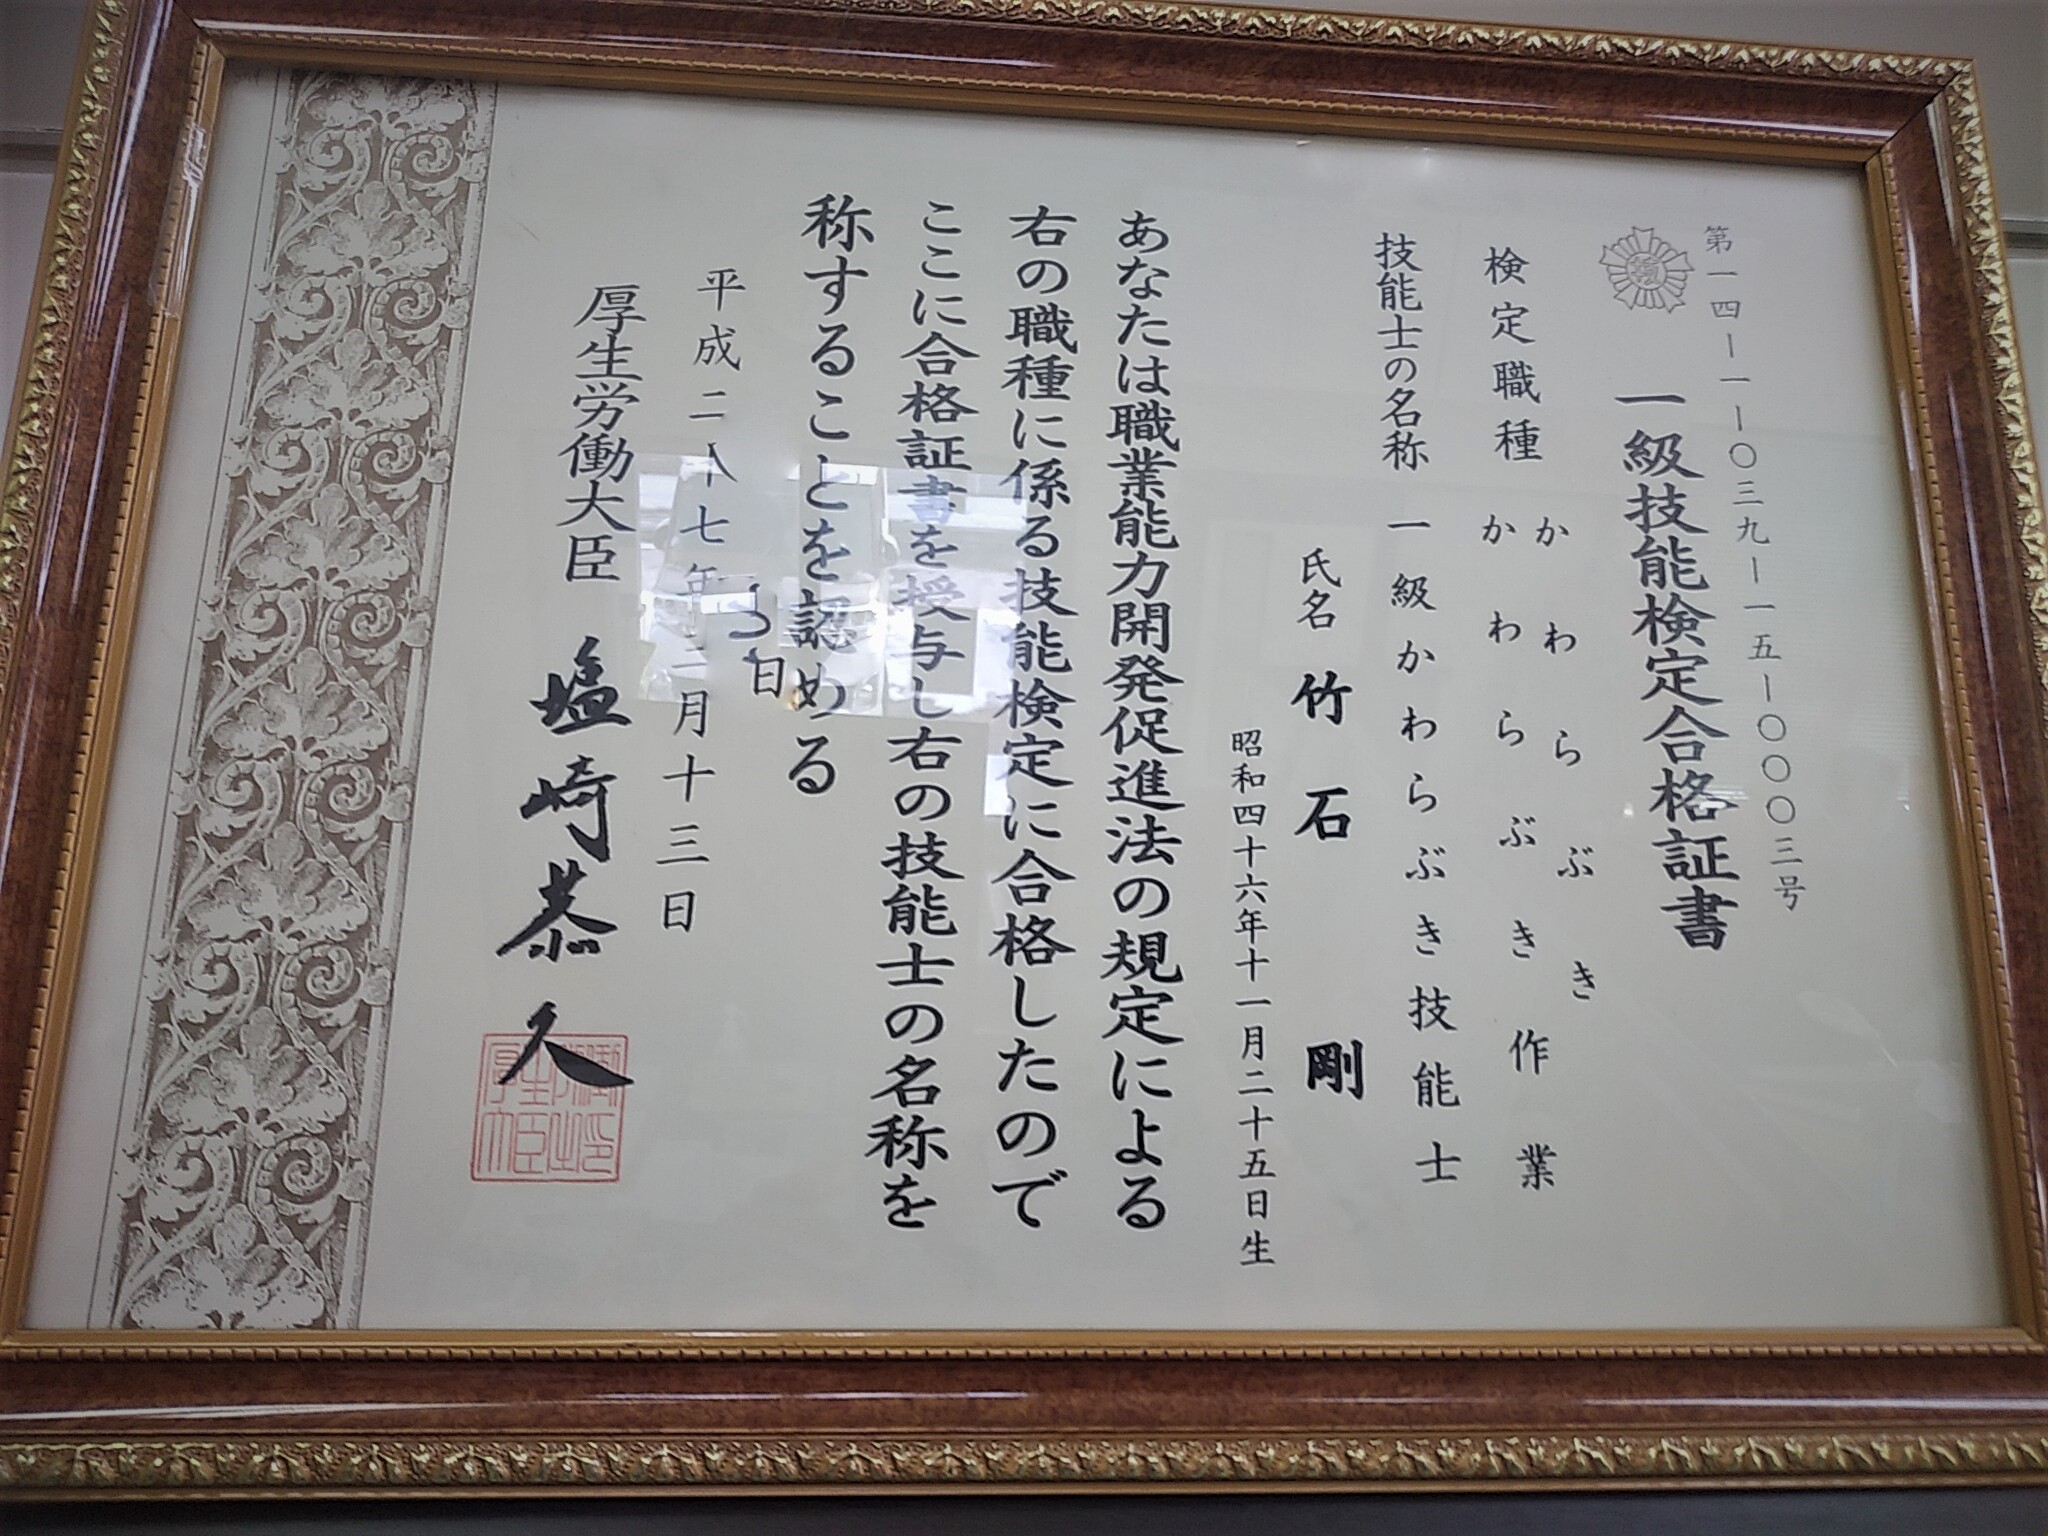 第一四ー一ー〇三九ー一五ー〇〇〇三号
一級技能検定合格証書
かわらぶき
検定職種 かわらぶき作業
技能士の名称 一級かわらぶき技能士
氏名 竹石 剛
昭和四十六年十一月二十五日生
あなたは職業能力開発促進法の規定による
右の職種に係る技能検定に合格したので
ここに合格証書を授与し右の技能士の名称を
称することを認める
平成二十七年三月十三日
厚生労働大臣 塩崎恭久
厚生労働大臣之印